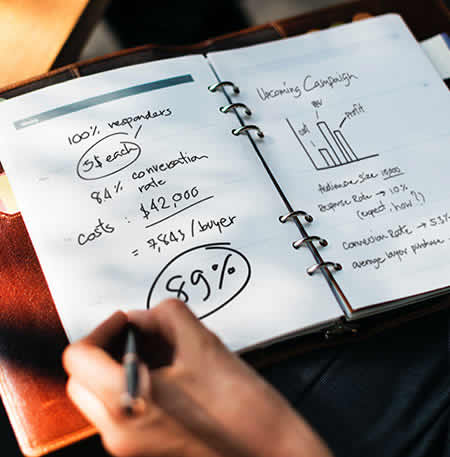 100% responders
5$ each
84% conversation
rate
costs : $42,000
= 7,843 /buyer
89%
Upcoming Campaign
BV
Cost
Profit
Audience Size 10,000
Response Rate → 10%
(expect, how?)
Conversion Rate → 5.3%
average buyer purchase →